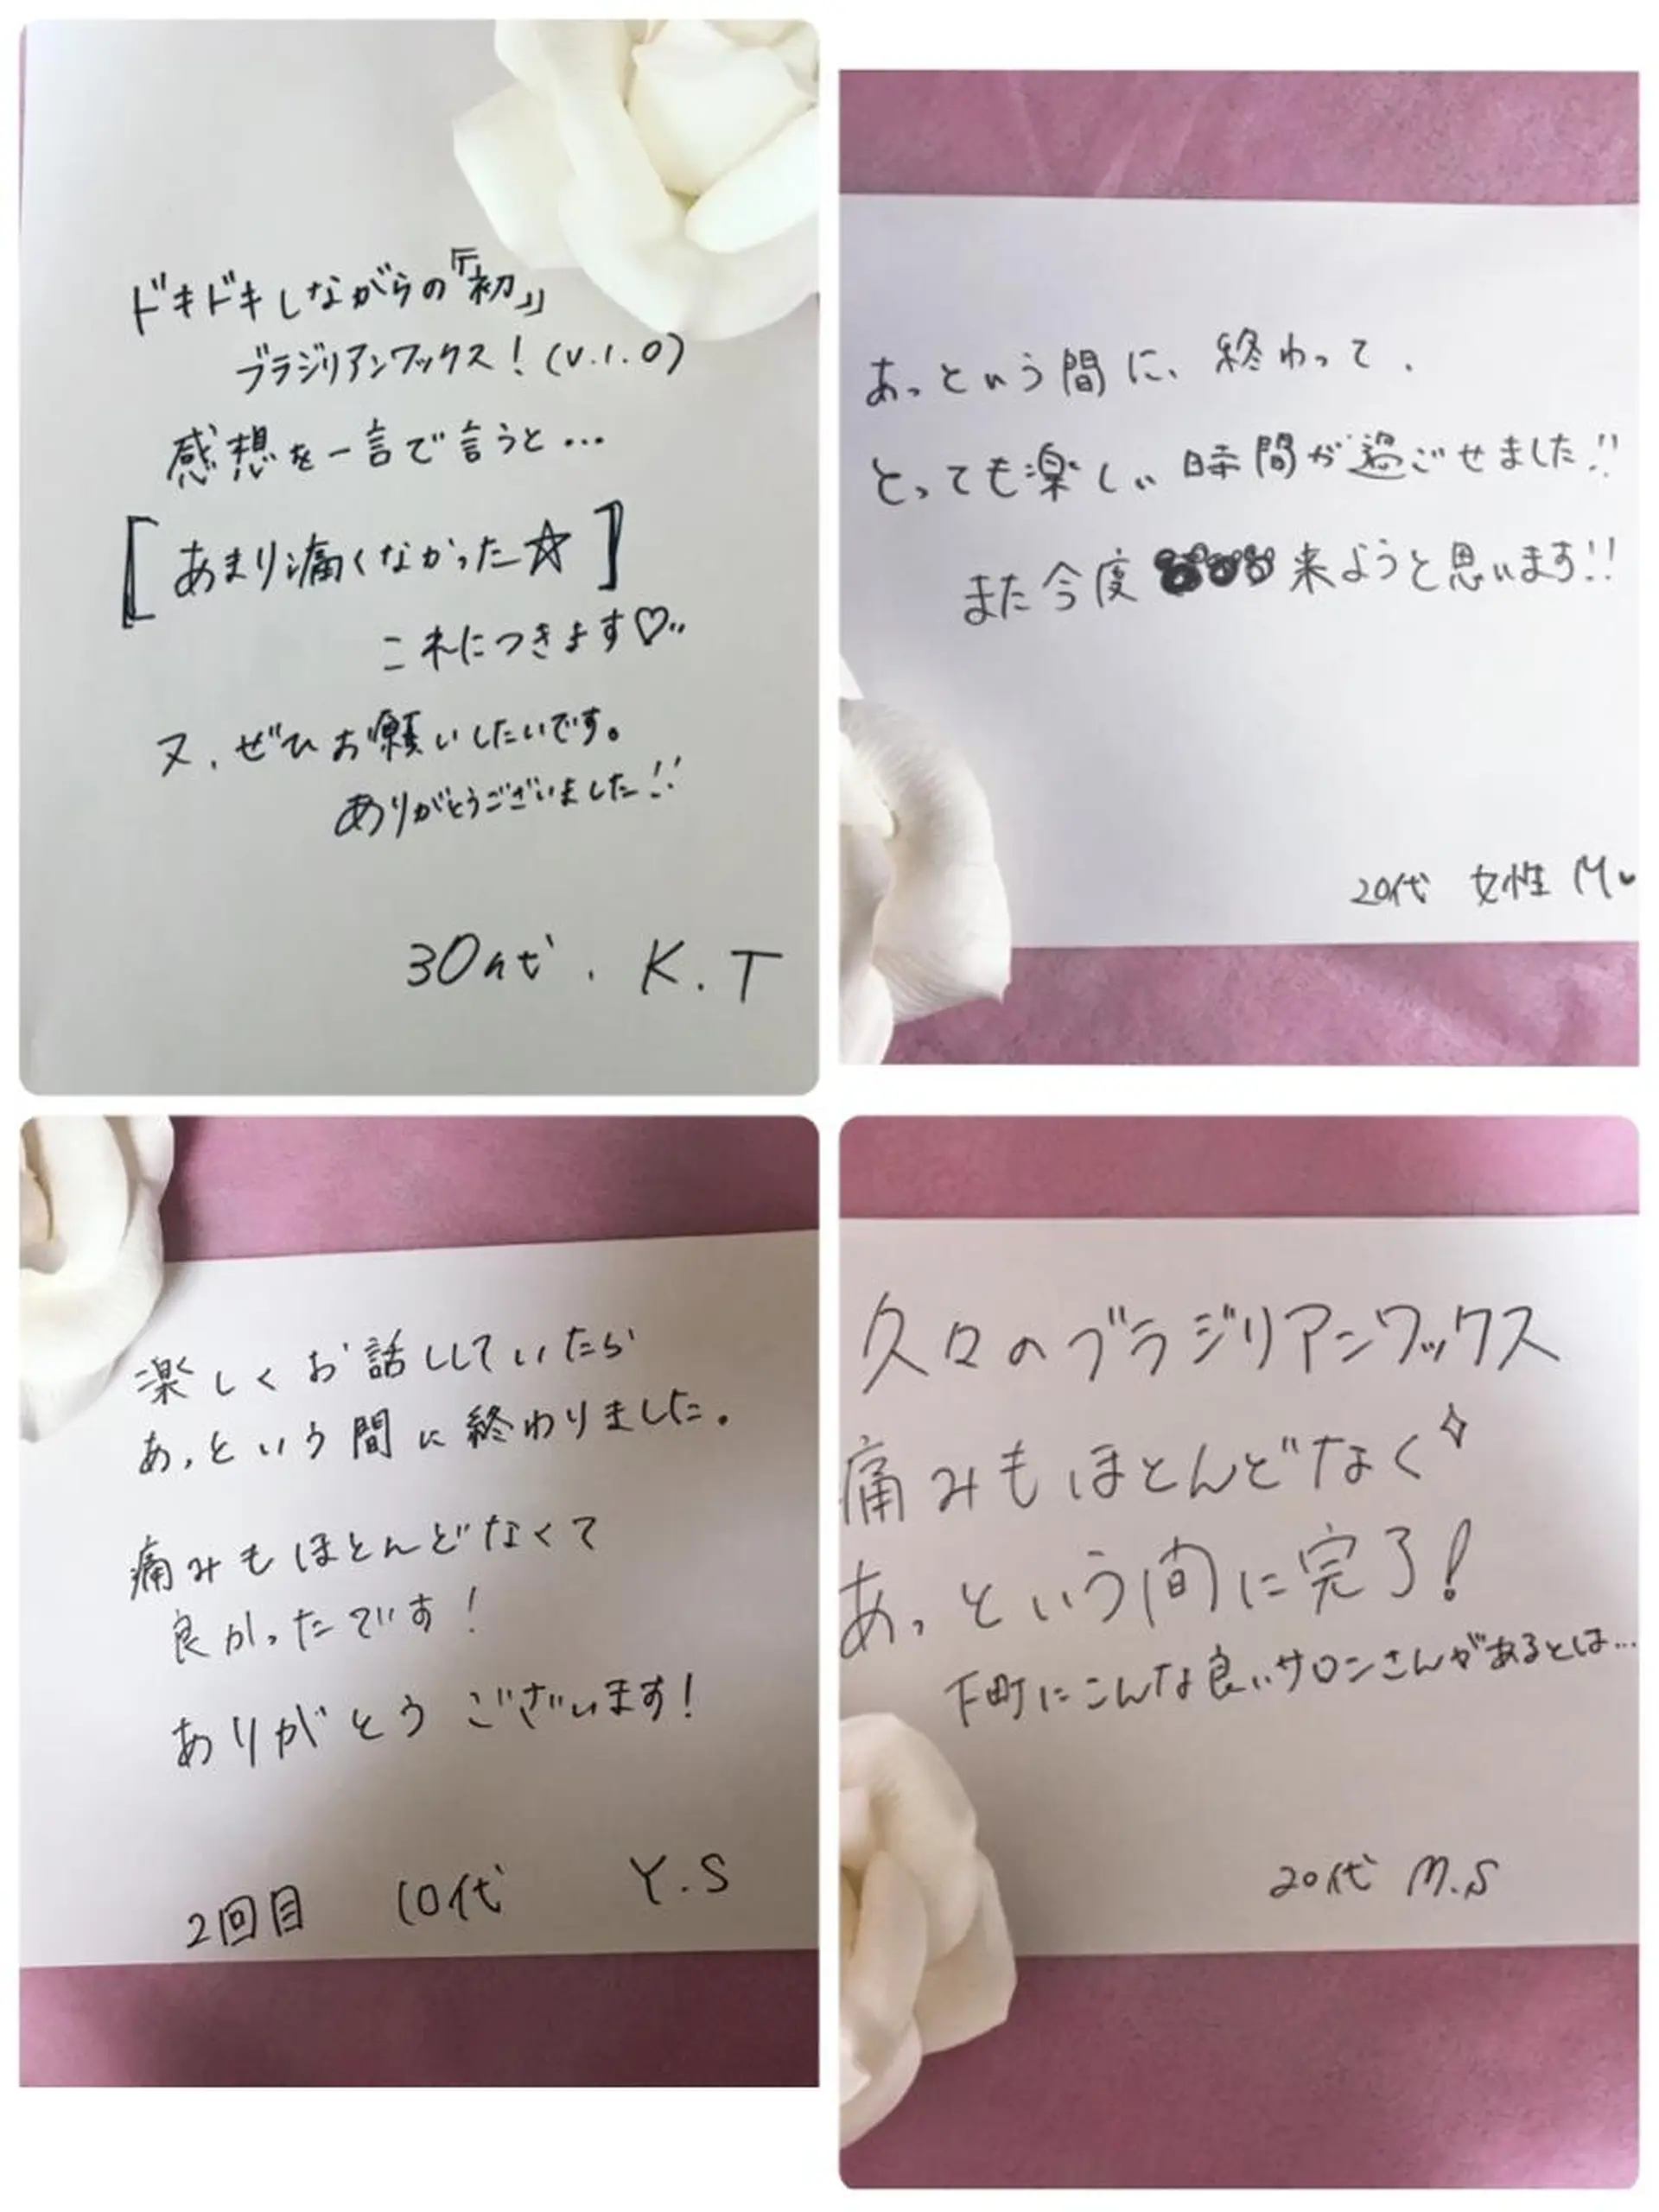 ドキドキしながらの『初』
ブラジリアンワックス！(V.I.O)
感想を一言で言うと…
[あまり痛くなかった☆]
これにつきます♡
又、ぜひお願いしたいです。
ありがとうございました!!
30代. K.T
あっという間に、終わって、
とっても楽しい時間が過ごせました!!
また今度 来ようと思います!!
20代 女性 M♥
楽しくお話ししていたら
あっという間に終わりました。
痛みもほとんどなくて
良かったです！
ありがとうございます！
2回目 10代 Y.S
久々のブラジリアンワックス
痛みもほとんどなく✧
あっという間に完了！
下町にこんな良いサロンさんがあるとは…
20代 M.S